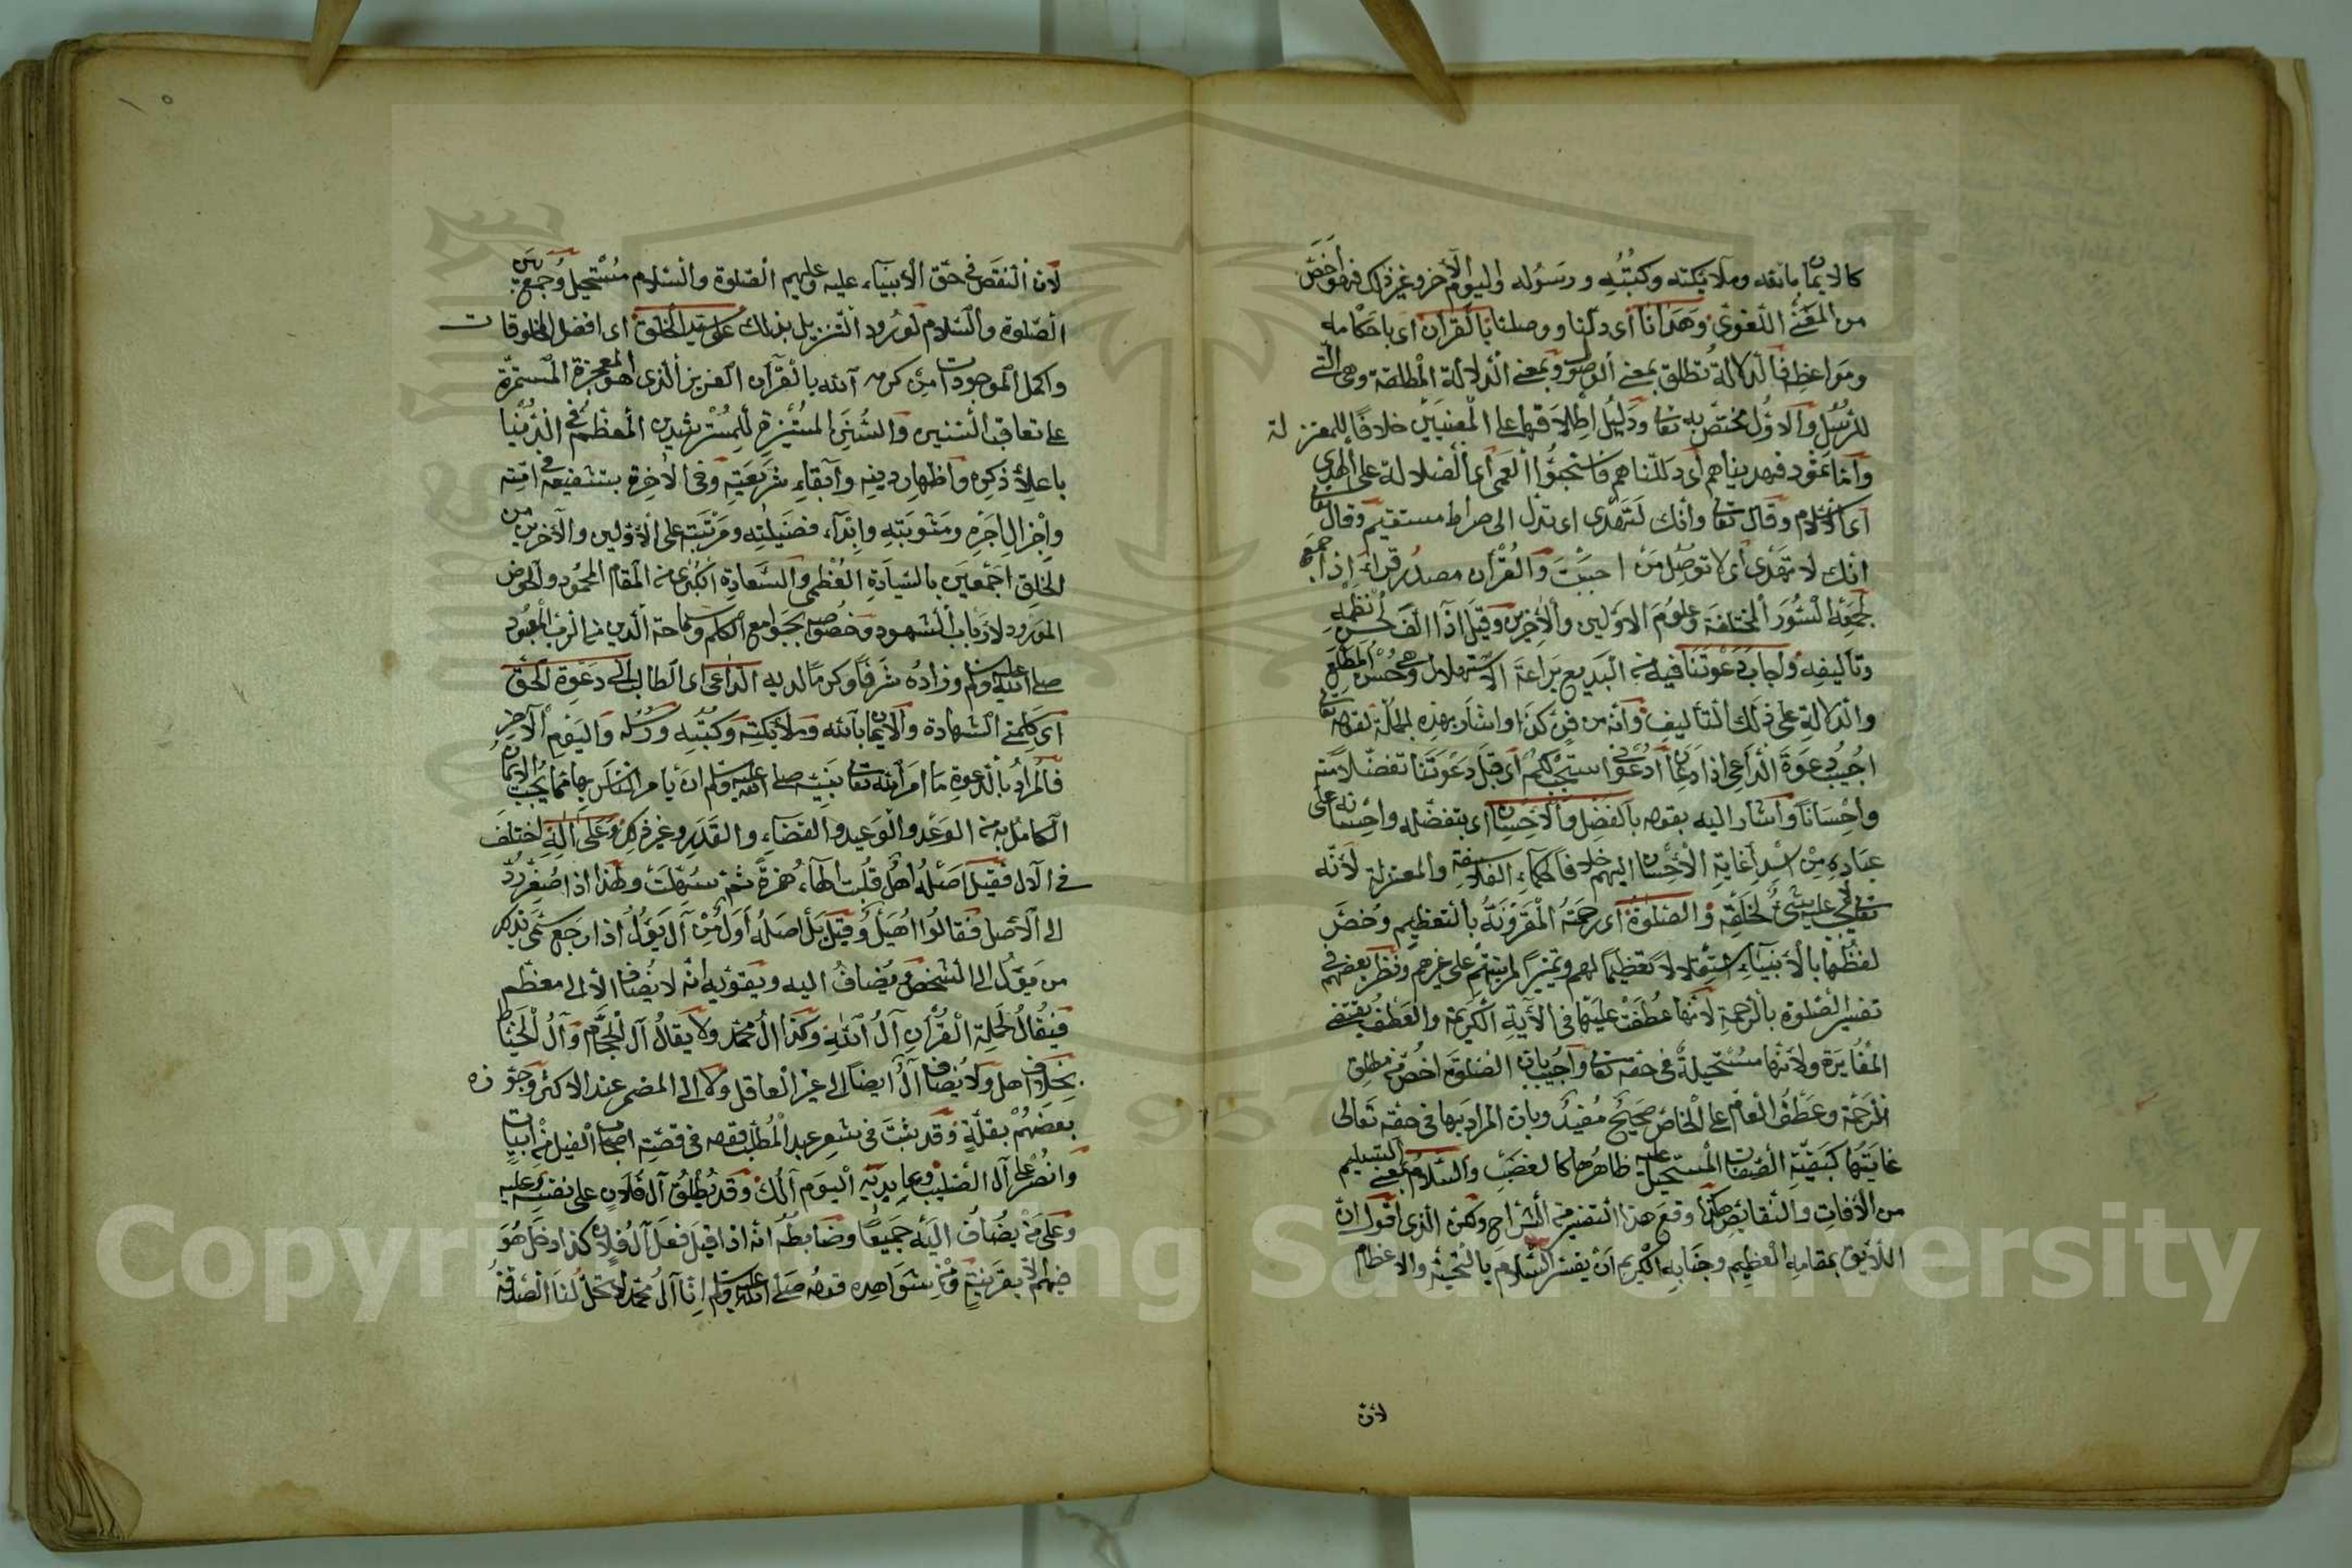 كالايمان بالله وملايكته وكتبه ورسوله واليوم الآخر وغير ذلك فهو اخص
من المعنى اللغوي وهدانا أي دلنا ووصلنا بالقرآن اي باحكامه
ومواعظه فالدلالة تطلق بمعنى الوصول وبمعنى الدلالة المطلقة وهي التي
للرسل والاول مختص به تعالى ودليل اطلاقها على المعنيين خلافا للمعتزلة
وأما ثمود فهديناهم أي دللناهم فاستحبوا العمى أي الضلالة على الهدى
أي الاسلام وقال تعالى وانك لتهدي اي تدل الى صراط مستقيم وقال تعالى
انك لا تهدي أي لا توصل من احببت والقرآن مصدر قراء اذا جمع
لجمعه السور المختلفة وعلوم الاولين والآخرين وقيل اذا الف لحسن نظمه
وتأليفه واجاب دعوتنا فيه من البديع براعة الاستهلال وهي حسن المطلع
والدلالة على ذلك التأليف وأنه من فن كذا واشار بهذه الجملة لقوله تعالى
اجيب دعوة الداعي اذا دعان أدعوني استجب لكم أي قبل دعوتنا تفضلا منه
واحسانا وأشار اليه بقوله بالفضل والاحسان اي بتفضله واحسانه على
عباده من اسداء غاية الاحسان اليهم خلافا لحكماء الفلاسفة والمعتزلة لأنه
تعالى لا يجب عليه شئ لخلقه والصلوة أي رحمته المقرونة بالتعظيم وخص
لفظها بالأنبياء استقلالا تعظيما لهم وتمييزا لمرتبتهم على غيرهم ونظر بعضهم في
تفسير الصلوة بالرحمة لأنها عطفت عليها في الآية الكريمة والعطف يقتضي
المغايرة ولانها مستحيلة في حقه تعالى وأجيب بان الصلوة اخص من مطلق
الرحمة وعطف العام على الخاص صحيح مفيد وبان المراد بها في حقه تعالى
غايتها كبقية الصفات المستحيل عليه ظاهرها كالغضب والسلام بمعنى التسليم
من الآفات والنقائص هكذا وقع هذا التفسير من الشراح ولكن الذي أقول ان
اللائق بمقامه العظيم وجنابه الكريم أن يفسر السلام بالتحية والاعظام
لان
لان النقص في حق الأنبياء عليه وعليهم الصلوة والسلام مستحيل وجمع بين
الصلوة والسلام لورود التنزيل بذلك على سيد الخلق اي افضل المخلوقات
واكمل الموجودات من كرمه الله بالقرآن العزيز الذي هو المعجزة المستمرة
على تعاقب السنين والسنن المستنيرة للمسترشدين المعظم في الدنيا
باعلاء ذكره واظهار دينه وابقاء شريعته وفي الآخرة بتشفيعه في امته
واجزال اجره ومثوبته وابداء فضيلته ومرتبته على الأولين والآخرين من
الخلق اجمعين بالسيادة العظمى والسعادة الكبرى من المقام المحمود والحوض
المورود لارباب الشهود وخصوصه بجوامع الكلم وسماحة الدين من الرب المعبود
صلى الله عليه وسلم وزاده شرفا وكرما لديه الداعي اي الطالب الى دعوة الحق
اي كلمتي الشهادة والايمان بالله وملائكته وكتبه ورسله واليوم الآخر
فالمراد بالدعوة ما امر الله تعالى نبيه صلى الله عليه وسلم ان يأمر الناس بها مما يجب الايمان
الكامل به من الوعد والوعيد والقضاء والقدر وغير ذلك وعلى آله اختلف
في الآل فقيل اصله اهل قلبت الهاء همزة ثم سهلت ولهذا اذا صغر رد
الى الاصل فقالوا اهيل وقيل بل اصله أول من آل يؤل اذا رجع سمي بذلك
من يؤل الى الشخص ويضاف اليه ويقويه انه لا يضاف الا الى معظم
فيقال لحملة القرآن آل الله وكذا آل محمد ولا يقال آل الحجام وآل الخياط
بخلاف اهل ولا يضاف آل ايضا الى غير العاقل ولا الى المضمر عند الاكثر وجوزه
بعضهم بقلة وقد ثبت في شعر عبد المطلب قوله في قصة اصحاب الفيل من ابيات
وانصر على آل الصليب وعابديه اليوم آلك وقد يطلق آل فلان على نفسه وعليه
وعلى من يضاف اليه جميعا وضابطه انه اذا قيل فعل آل فلان كذا دخل هو
فيهم الا بقرينة ومن شواهده قوله صلى الله عليه وسلم انا آل محمد لا تحل لنا الصدقة
Copyright © King Saud University
1957